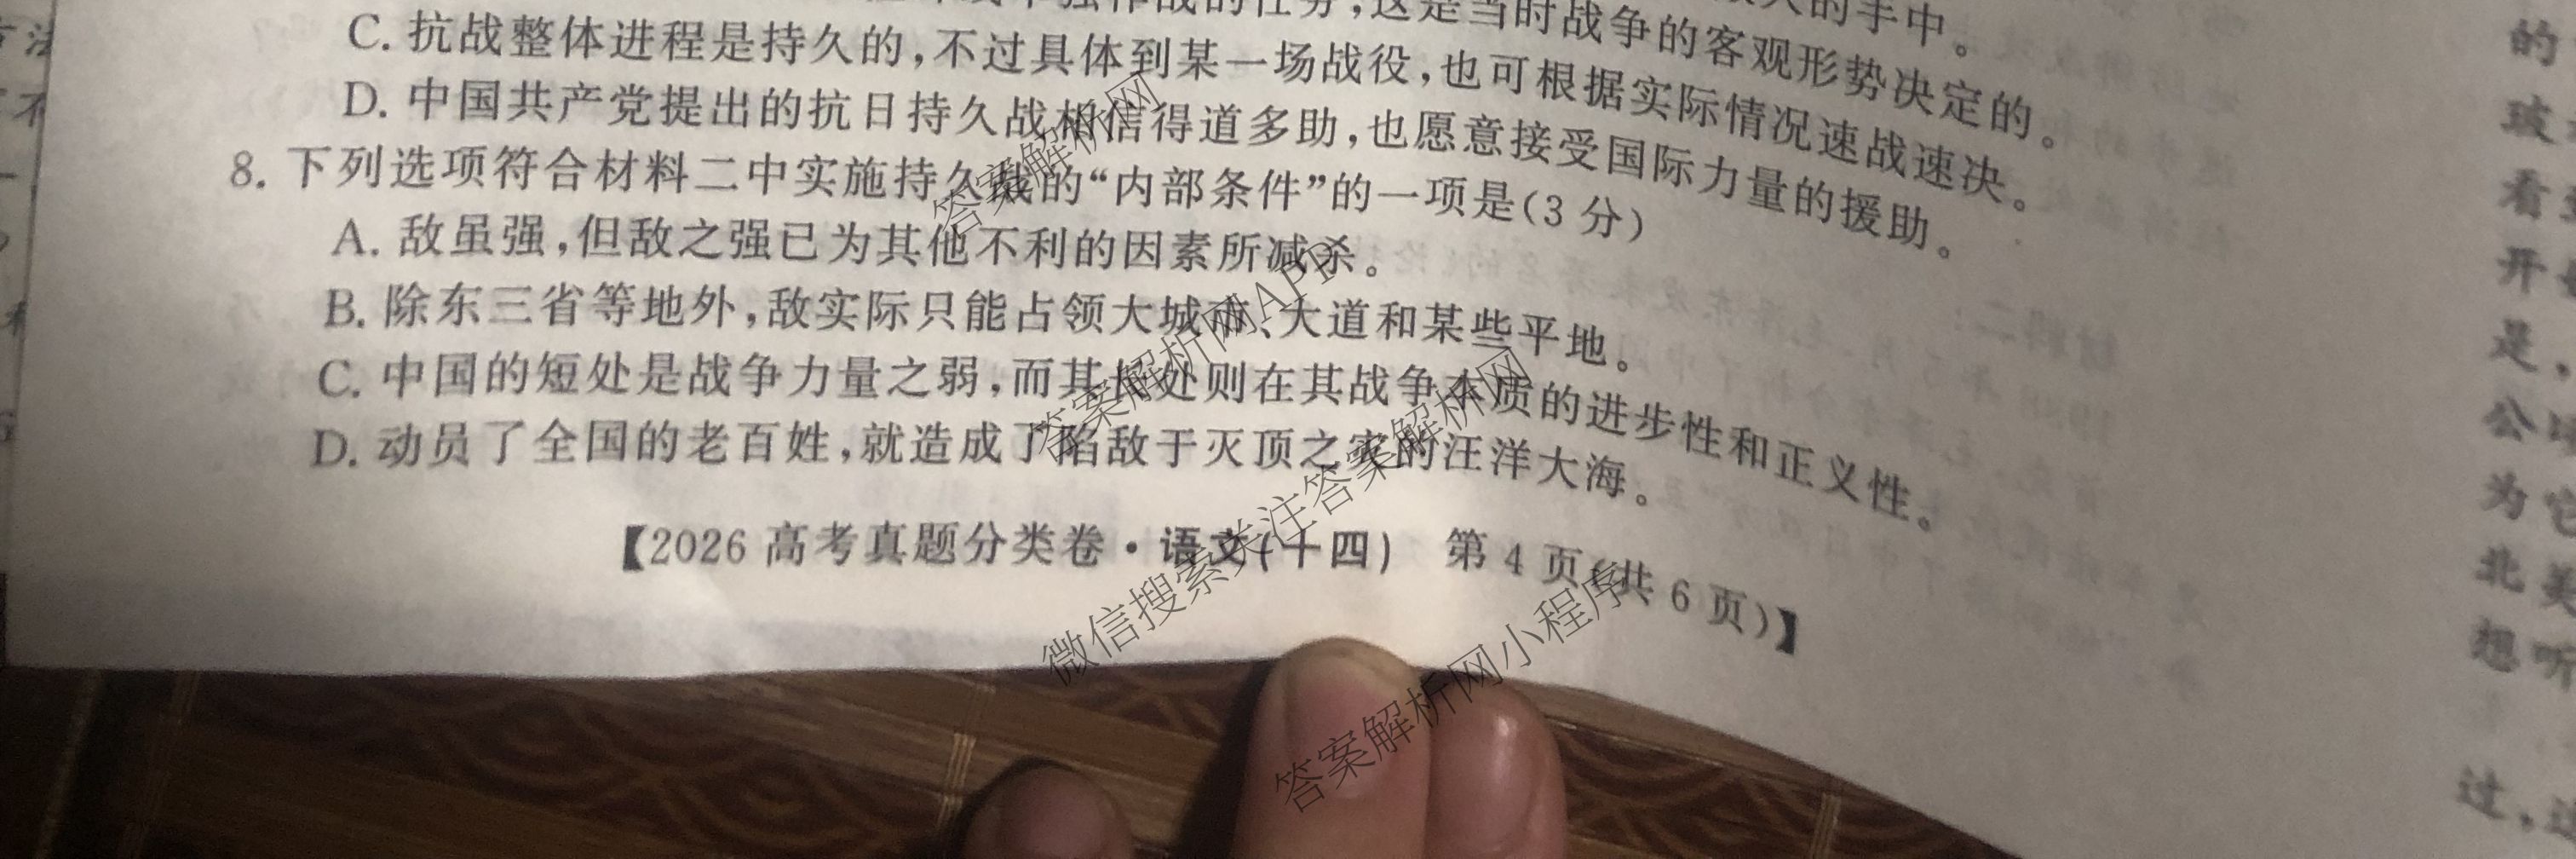 的任务,这是当时战争的客观形势决定的。
人的手中。
C. 抗战整体进程是持久的,不过具体到某一场战役,也可根据实际情况速战速决。
D. 中国共产党提出的抗日持久战相信得道多助,也愿意接受国际力量的援助。
8. 下列选项符合材料二中实施持久战的“内部条件”的一项是(3 分)
A. 敌虽强,但敌之强已为其他不利的因素所减杀。
B. 除东三省等地外,敌实际只能占领大城市、大道和某些平地。
C. 中国的短处是战争力量之弱,而其长处则在其战争本质的进步性和正义性。
D. 动员了全国的老百姓,就造成了陷敌于灭顶之灾的汪洋大海。
【2026 高考真题分类卷·语文(十四) 第 4 页(共 6 页)】
答案解析网
答案解析网APP
微信搜索关注答案解析网
答案解析网小程序
的
玻
看
开
是,
公
为它
北美
想听
过,这